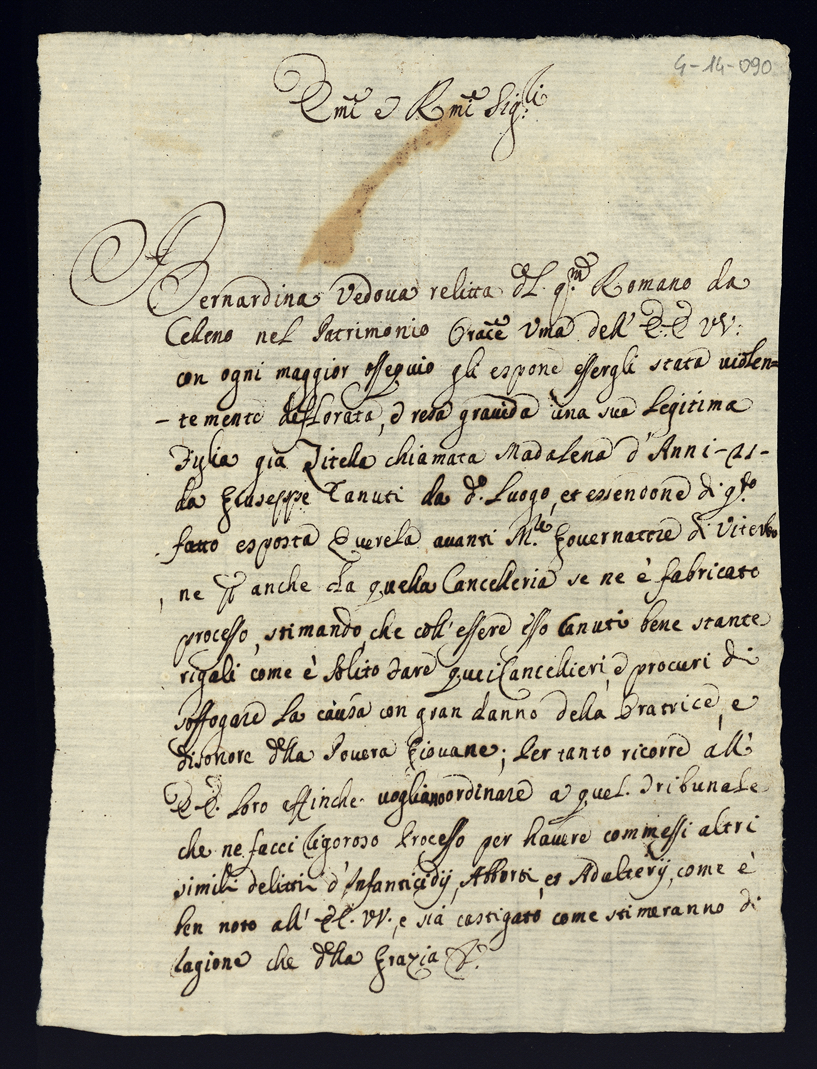 4-14-090
Emi e Rmi Sig:ri
Bernardina Vedova relitta del q.m Romano da
Celleno nel Patrimonio Oratce Uma dell' EE VV:
con ogni maggior ossequio gli espone essergli stata violen=
-temente deflorata, e resa gravida una sua legitima
Figlia già Zitella chiamata Madalena d'Anni -21-
da Giuseppe Tanuti da do. Luogo, et essendone di qto
fatto esposta Querela avanti M.re Governatore di Viterbo
ne p anche da quella Cancelleria se ne è fabricato
processo, stimando, che coll' essere esso Canuti bene stante
rigali come è solito dare quei Cancellieri, e procuri di
soffogare la causa con gran danno della Oratrice, e
disonore della Povera Giovane; Per tanto ricorre all'
EE. loro affinche vogliano ordinare a quel Tribunale
che ne facci rigoroso Processo per havere commessi altri
simili delitti d'Infanticidij, Abborti, et Adulterij, come è
ben noto all' EE. VV., e sia castigato come stimeranno di
ragione che della Grazia &.